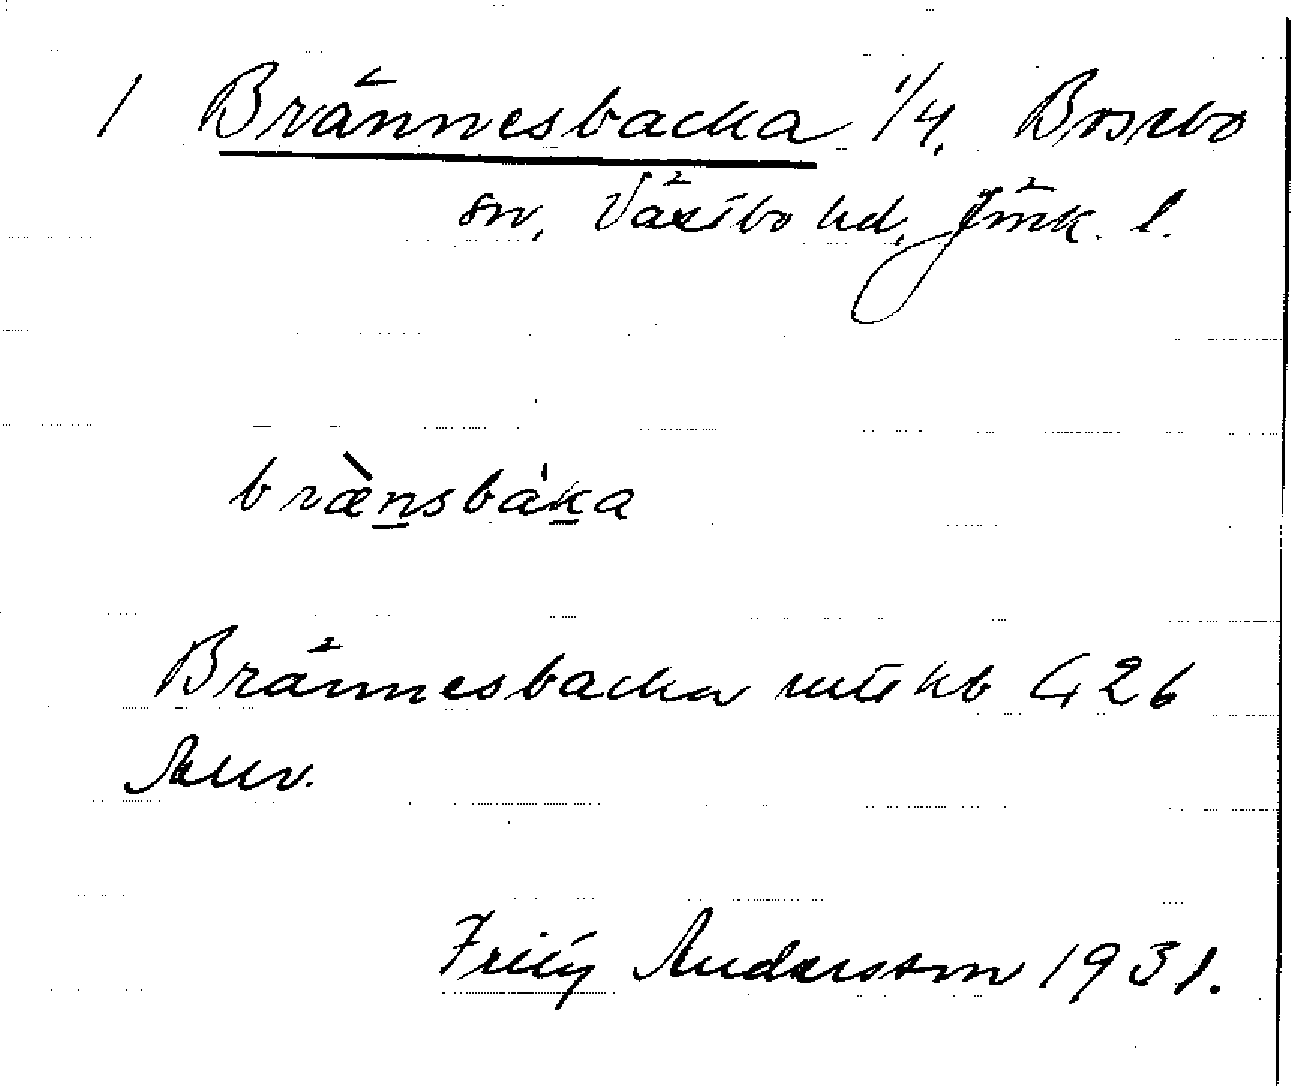 1 Brännesbacka 1/4. Bosebo
sn, Västbo hd, Jönk. l.
bræ̀nsbáka
Brännesbacka utskb C, 26
Anv.
Fritz Andersson 1931.